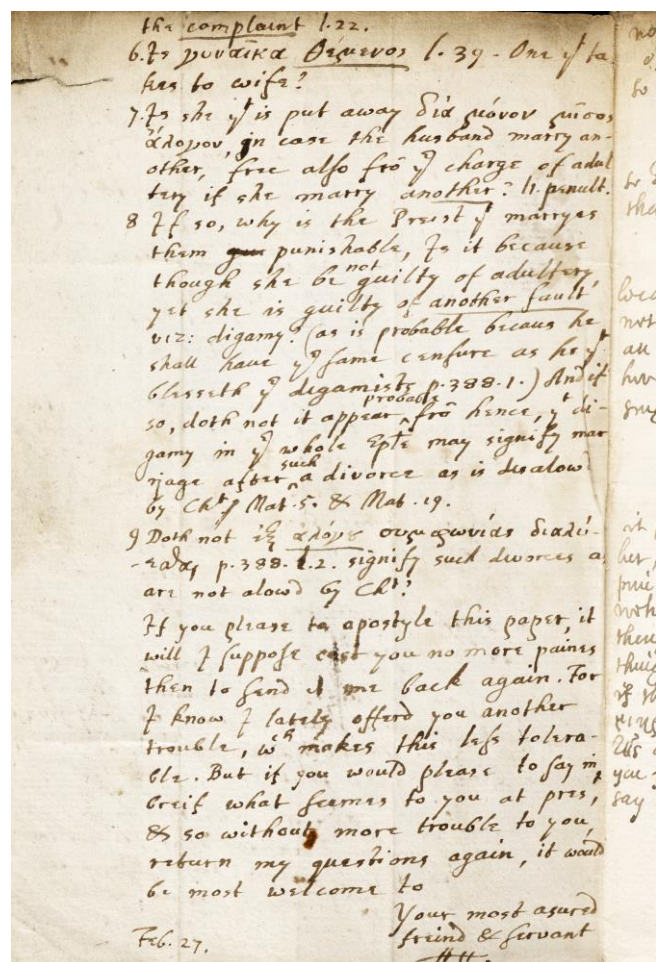 the complaint l.22.
6. Is γυναῖκα θέμενος l.39 - One yt ta-
kes to wife?
7. Is she yt is put away διὰ μόνον μῖσος
ἄλογον, in case the husband marry an-
other, free also frō ye charge of adul
tery if she marry another? l. penult.
8 If so, why is the Preist yt marryes
them punishable, Is it because
though she be not guilty of adultery,
yet she is guilty of another fault
viz: digamy? (as is probable becaus he
shall have ye same censure as he yt
blesseth ye digamists p.388.1.) And if
so, doth not it appear probable frō hence, yt di-
gamy in ye whole Eptē may signify mar
riage after such a divorce as is disalowd
by Cht Mat.5. & Mat.19.
9 Doth not ἐξ ἀλόγου συμφωνίας διαλύ-
-εσθαι p.388.l.2. signify such divorces as
are not alowd by Cht?
If you please to apostyle this paper, it
will I suppose cost you no more paines
then to send it me back again. For
I know I lately offerd you another
trouble, wch makes this less tolera-
ble. But if you would please to say in
breif what seemes to you at pres,
& so without more trouble to you
return my questions again, it would
be most welcome to
Your most asured
Feb. 27. freind & servant
HH.